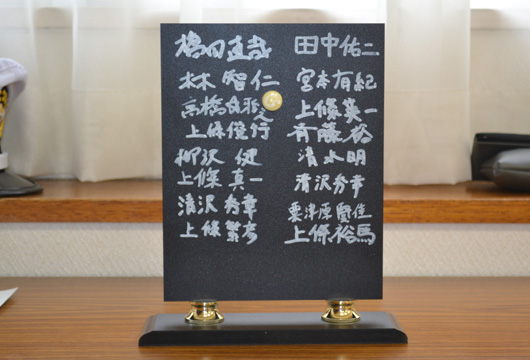 田中佑二
宮本有紀
上條英一
斉藤裕
清水明
清沢秀幸
上條裕馬
橋田直哉
木木智仁
高橋
上條俊行
柳沢健
上條真一
清沢秀幸
上條繁彦